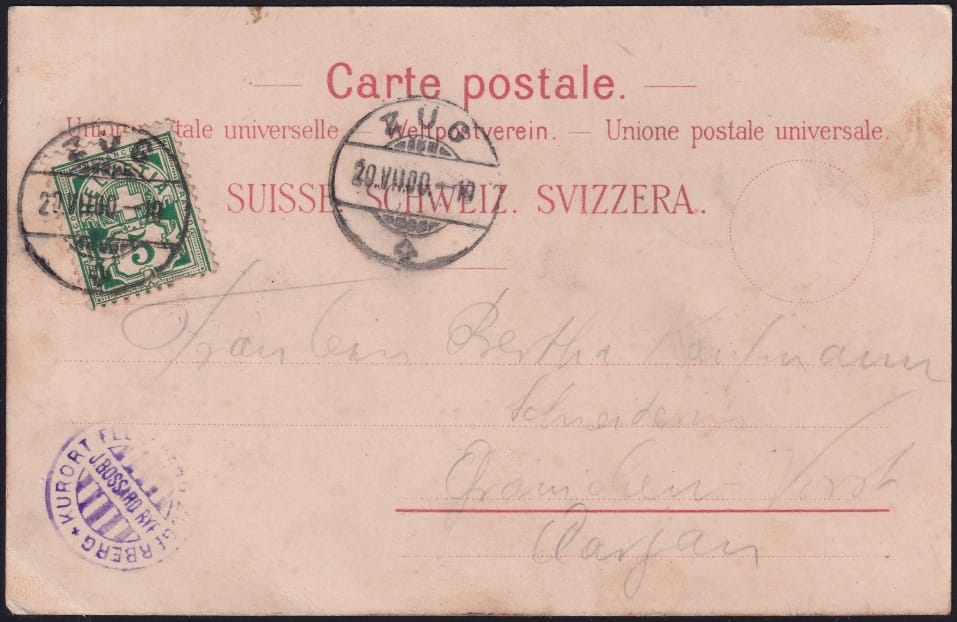 Carte postale.
Union postale universelle. — Weltpostverein. — Unione postale universale.
SUISSE. SCHWEIZ. SVIZZERA.
ZUG
20.VII.00.-10
ZUG
20.VII.00.-10
5
Fräulein Bertha Kaufmann
Schneiderin
Gränichen Vorst
Aargau
KURORT FELSENEGG ZUGERBERG
J. BOSSARD RYF